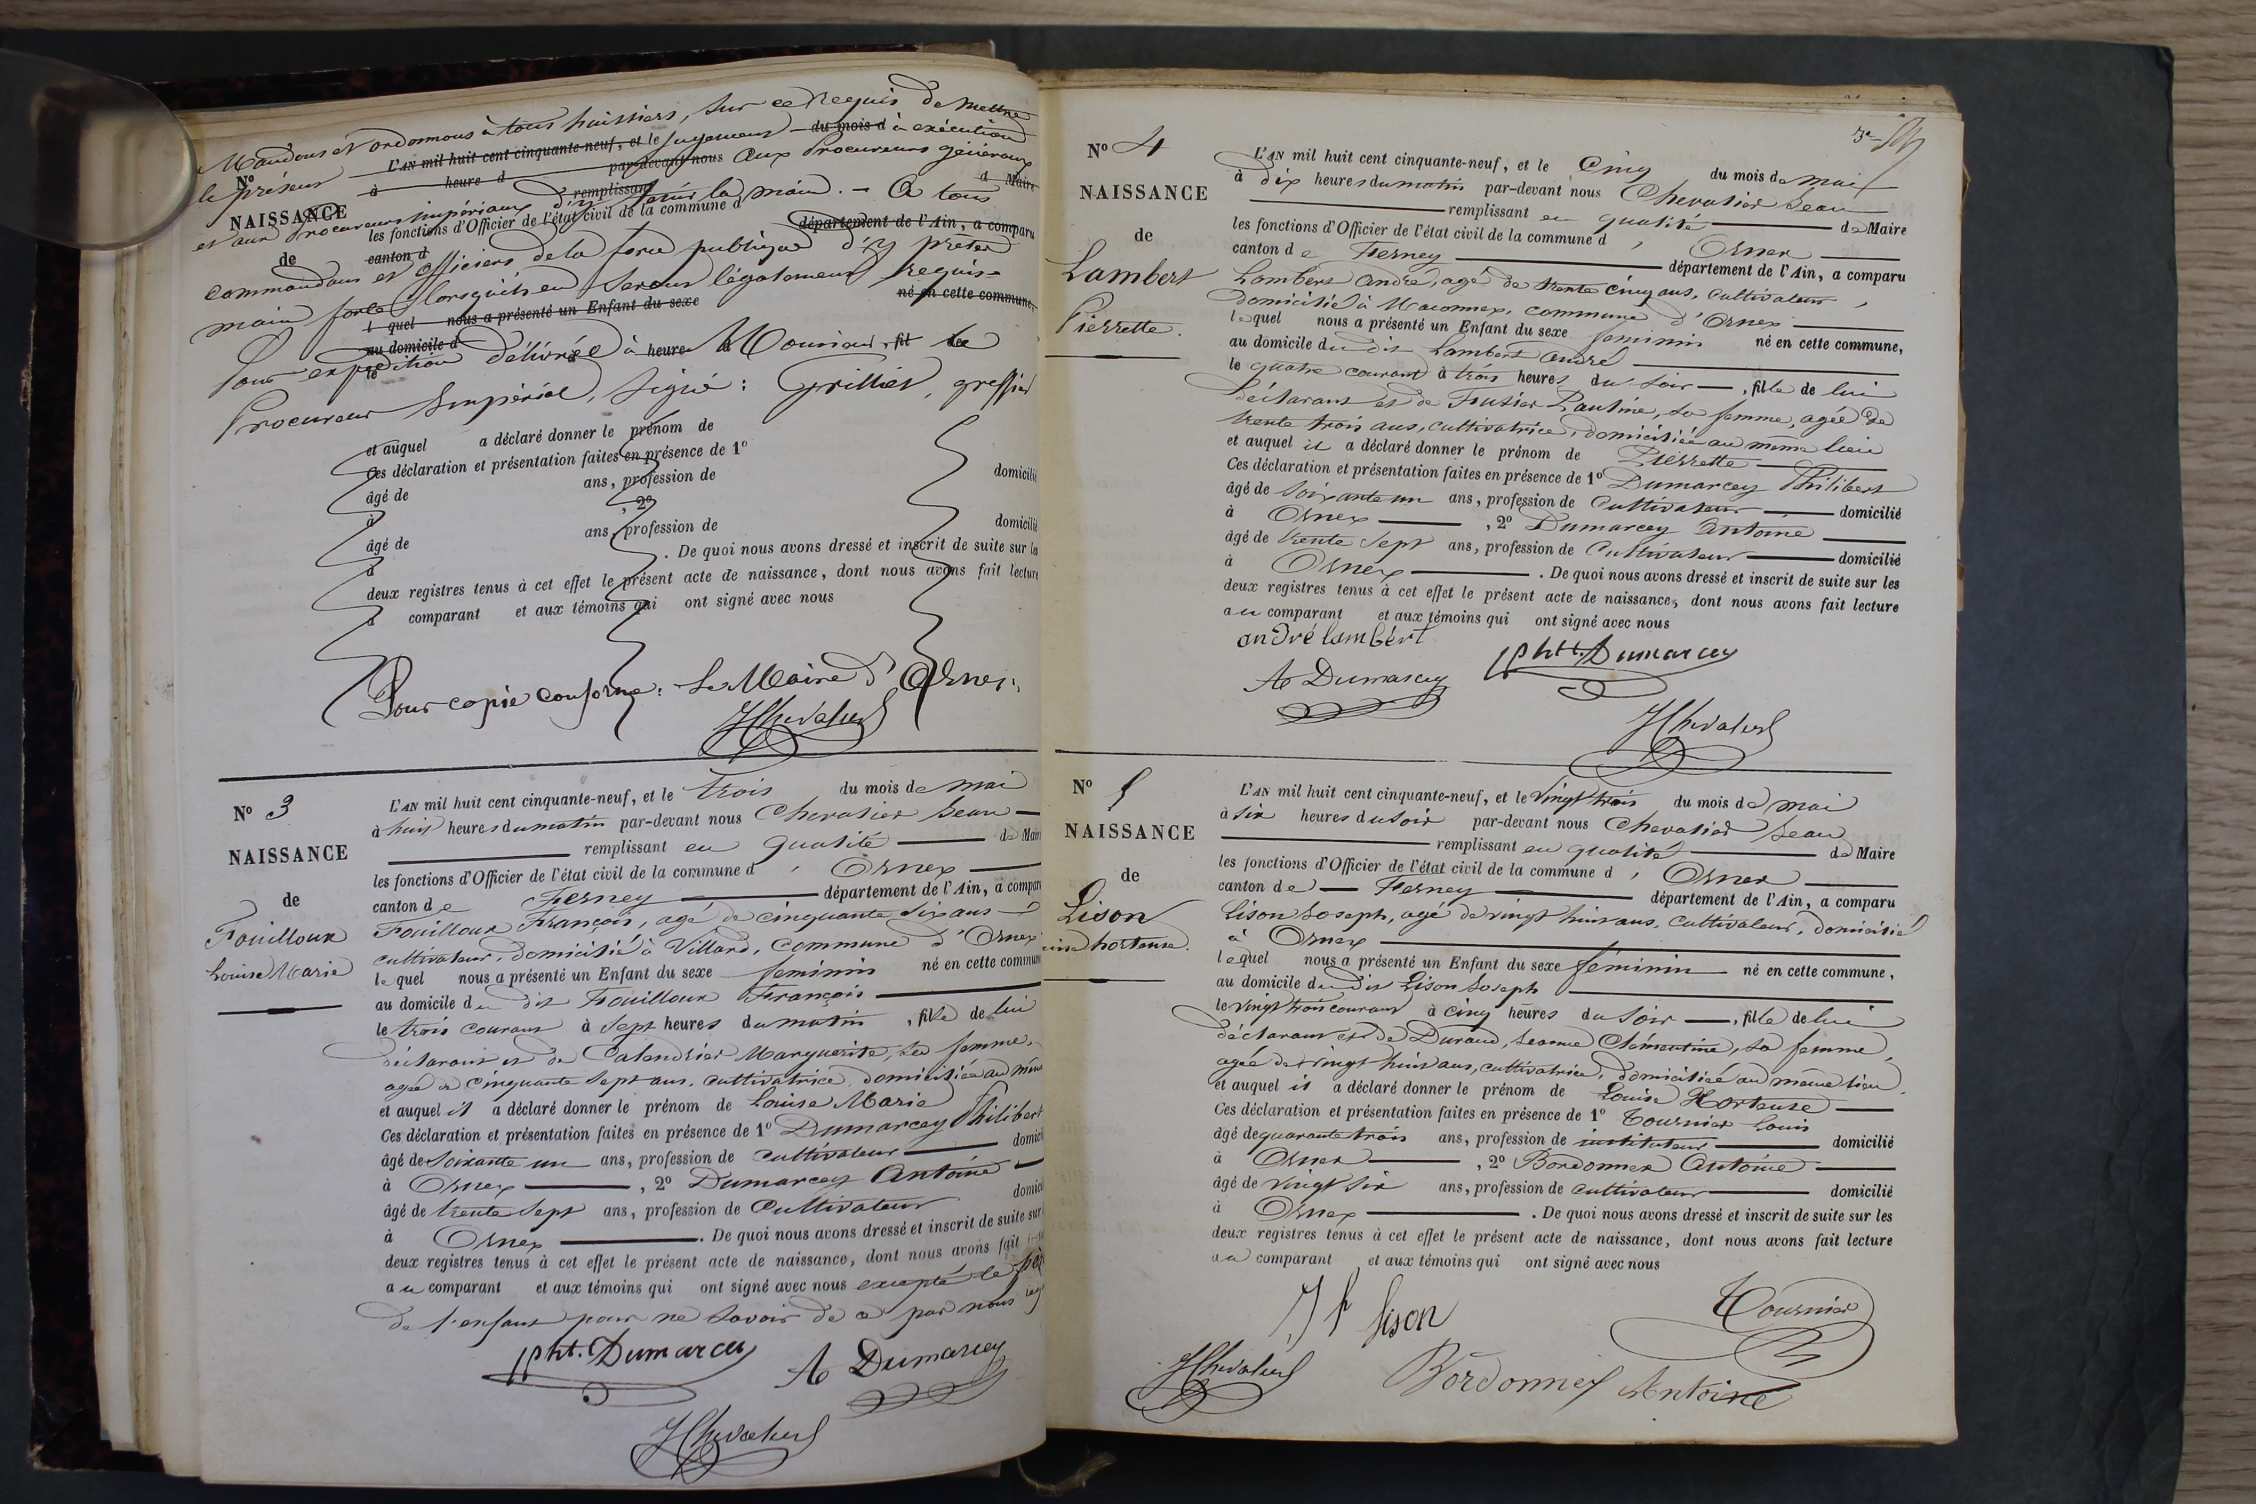 Mandons et ordonnons à tous huissiers, sur ce requis de mettre
L'AN mil huit cent cinquante-neuf, et le jugement du mois d à exécution
le présent
No à heure d par-devant nous aux Procureurs généraux
remplissant d Maire
NAISSANCE
et aux Procureurs impériaux d'y tenir la main. - A tous
les fonctions d'Officier de l'état civil de la commune d
de canton d département de l'Ain, a comparu
commandans et officiers de la force publique d'y preter
main forte lorsqu'ils en seront légalement requis -
l quel nous a présenté un Enfant du sexe né en cette commune,
au domicile d
Pour expédition délivrée à Monsieur le
le à heure d , fil de
Procureur Impérial, signé : Grillier, greffier
et auquel a déclaré donner le prénom de
Ces déclaration et présentation faites en présence de 1º
âgé de ans, profession de domicilié
à , 2º
âgé de ans, profession de domicilié
à . De quoi nous avons dressé et inscrit de suite sur les
deux registres tenus à cet effet le présent acte de naissance, dont nous avons fait lecture
a comparant et aux témoins qui ont signé avec nous
Pour copie conforme : Le Maire d'Ornex,
JChevalier
No 3
NAISSANCE
de
Fouilloux
Louise Marie
L'AN mil huit cent cinquante-neuf, et le trois du mois de mai
à huit heures du matin par-devant nous Chevalier Jean
remplissant en qualité de Maire
les fonctions d'Officier de l'état civil de la commune d' Ornex
canton de Ferney département de l'Ain, a comparu
Fouilloux François, agé de cinquante six ans
cultivateur, domicilié à Villard, commune d'Ornex
lequel nous a présenté un Enfant du sexe feminin né en cette commune
au domicile du dit Fouilloux François
le trois courant à sept heures du matin , fille de lui
déclarant et de Calendrier Marguerite, sa femme,
agée de cinquante sept ans, cultivatrice, domiciliée au même
et auquel il a déclaré donner le prénom de Louise Marie
Ces déclaration et présentation faites en présence de 1º Dumarcey Philibert
âgé de soixante un ans, profession de cultivateur domici
à Ornex , 2º Dumarcey Antoine
âgé de trente sept ans, profession de Cultivateur domici
à Ornex . De quoi nous avons dressé et inscrit de suite sur
deux registres tenus à cet effet le présent acte de naissance, dont nous avons fait
au comparant et aux témoins qui ont signé avec nous excepté le père
de l'enfant pour ne savoir de ce par nous
Pht. Dumarcey
A Dumarcey
JChevalier
No 4
NAISSANCE
de
Lambert
Pierrette.
L'AN mil huit cent cinquante-neuf, et le Cinq du mois de mai
à dix heures du matin par-devant nous Chevalier Jean
remplissant en qualité de Maire
les fonctions d'Officier de l'état civil de la commune d' Ornex
canton de Ferney département de l'Ain, a comparu
Lambert André, agé de trente cinq ans, cultivateur,
domicilié à Maconnex, commune d'Ornex
lequel nous a présenté un Enfant du sexe feminin né en cette commune,
au domicile du dit Lambert André
le quatre courant à trois heures du soir , fille de lui
déclarant et de Futier Pauline, sa femme, agée de
trente trois ans, cultivatrice, domiciliée au même lieu
et auquel il a déclaré donner le prénom de Pierrette
Ces déclaration et présentation faites en présence de 1º Dumarcey Philibert
âgé de soixante un ans, profession de Cultivateur domicilié
à Ornex , 2º Dumarcey Antoine
âgé de trente sept ans, profession de Cultivateur domicilié
à Ornex . De quoi nous avons dressé et inscrit de suite sur les
deux registres tenus à cet effet le présent acte de naissance, dont nous avons fait lecture
au comparant et aux témoins qui ont signé avec nous
andré lambert
Phtt. Dumarcey
A Dumarcey
JChevalier
No 5
NAISSANCE
de
Lison
hortense.
L'AN mil huit cent cinquante-neuf, et le vingt trois du mois de mai
à six heures du soir par-devant nous Chevalier Jean
remplissant en qualité de Maire
les fonctions d'Officier de l'état civil de la commune d' Ornex
canton de Ferney département de l'Ain, a comparu
Lison Joseph, agé de vingt huit ans, cultivateur, domicilié
à Ornex
lequel nous a présenté un Enfant du sexe féminin né en cette commune,
au domicile du dit Lison Joseph
le vingt trois courant à cinq heures du soir , fille de lui
déclarant et de Durand, Jeanne Clémentine, sa femme,
agée de vingt huit ans, cultivatrice, domiciliée au même lieu,
et auquel il a déclaré donner le prénom de Louise Hortense
Ces déclaration et présentation faites en présence de 1º Tournier Louis
âgé de quarante trois ans, profession de instituteur domicilié
à Ornex , 2º Bordonnex Antoine
âgé de vingt six ans, profession de cultivateur domicilié
à Ornex . De quoi nous avons dressé et inscrit de suite sur les
deux registres tenus à cet effet le présent acte de naissance, dont nous avons fait lecture
au comparant et aux témoins qui ont signé avec nous
Jh lison
Tournier
JChevalier
Bordonnex Antoine